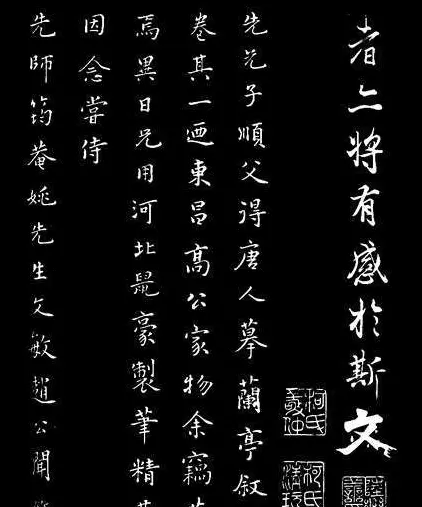 者亦將有感於斯文
柯氏敬仲
柯氏清玩
先兄子順父得唐人摹蘭亭叙
卷其一迺東昌高公家物余竊
焉異日兄用河北鼠豪製筆精
因念嘗侍
先師筠菴姚先生文敏趙公聞